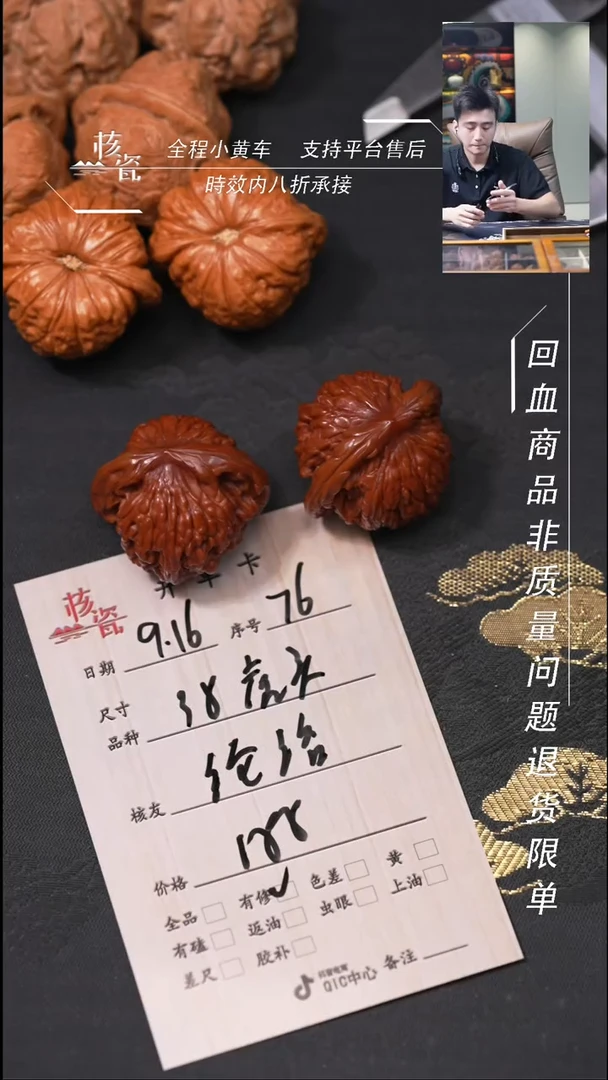 核瓷
全程小黄车 支持平台售后
時效内八折承接
回血商品非质量问题退货限单
开车卡
核瓷
日期 9.16 序号 76
尺寸
品种 38 虎头
核友 伦治
价格 188
全品 有修 色差 黄
有磕 返油 虫眼 上油
差尺 胶补
抖音电商
QIC中心 备注